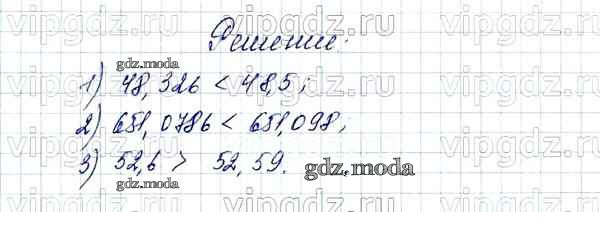 vipgdz.ru vipgdz.ru vipgdz.ru
Решение:
gdz.moda
1) 48,326 < 48,5;
vipgdz.ru vipgdz.ru vipgdz.ru
2) 651,0786 < 651,098;
gdz.moda
3) 52,6 > 52,59.
gdz.moda
vipgdz.ru vipgdz.ru vipgdz.ru
gdz.moda